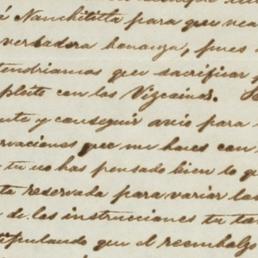 á Nanchititla para que vean
verdadera bonanza, pues
tendriamos que sacrificar
pleito con los Vizcainos. Se
te y conseguir avio para
rvaciones que me haces con
tu no has pensado bien lo que
ta reservada para variar las
de las instrucciones tu tan
ipulando que el reembolzo